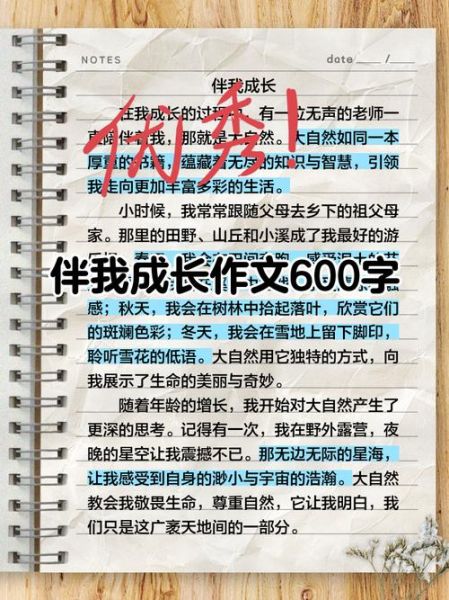 NOTES
date ____ /____
伴我成长
在我成长的过程中，有一位无声的老师一
直陪伴着我，那就是大自然。大自然如同一本
厚重的书籍，蕴藏着无尽的知识与智慧，引领
我走向更加丰富多彩的生活。
优秀！
小时候，我常常跟随父母去乡下的祖父母
家。那里的田野、山丘和小溪成了我最好的游
伴我成长作文600字
感；秋天，我会在树林中拾起落叶，欣赏它们
的斑斓色彩；冬天，我会在雪地上留下脚印，
聆听雪花的低语。大自然用它独特的方式，向
我展示了生命的美丽与奇妙。
随着年龄的增长，我开始对大自然产生了
更深的思考。记得有一次，我在野外露营，夜
晚的星空让我震撼不已。那无边无际的星海，
让我感受到自身的渺小与宇宙的浩瀚。大自然
教会我敬畏生命，尊重自然，它让我明白，我
们只是这广袤天地间的一部分。